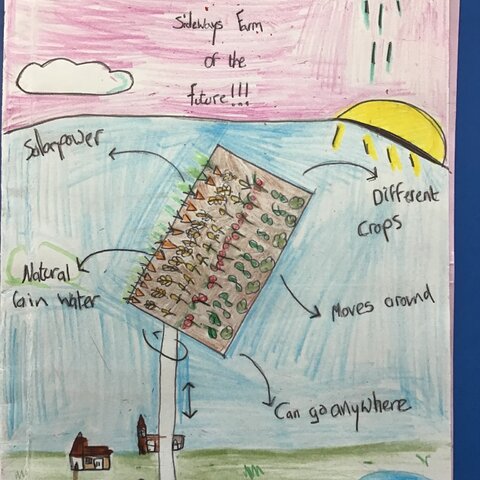 Sideways Farm
of the
future!!!
Solarpower
Different
Crops
Natural
rain water
Moves around
Can go anywhere